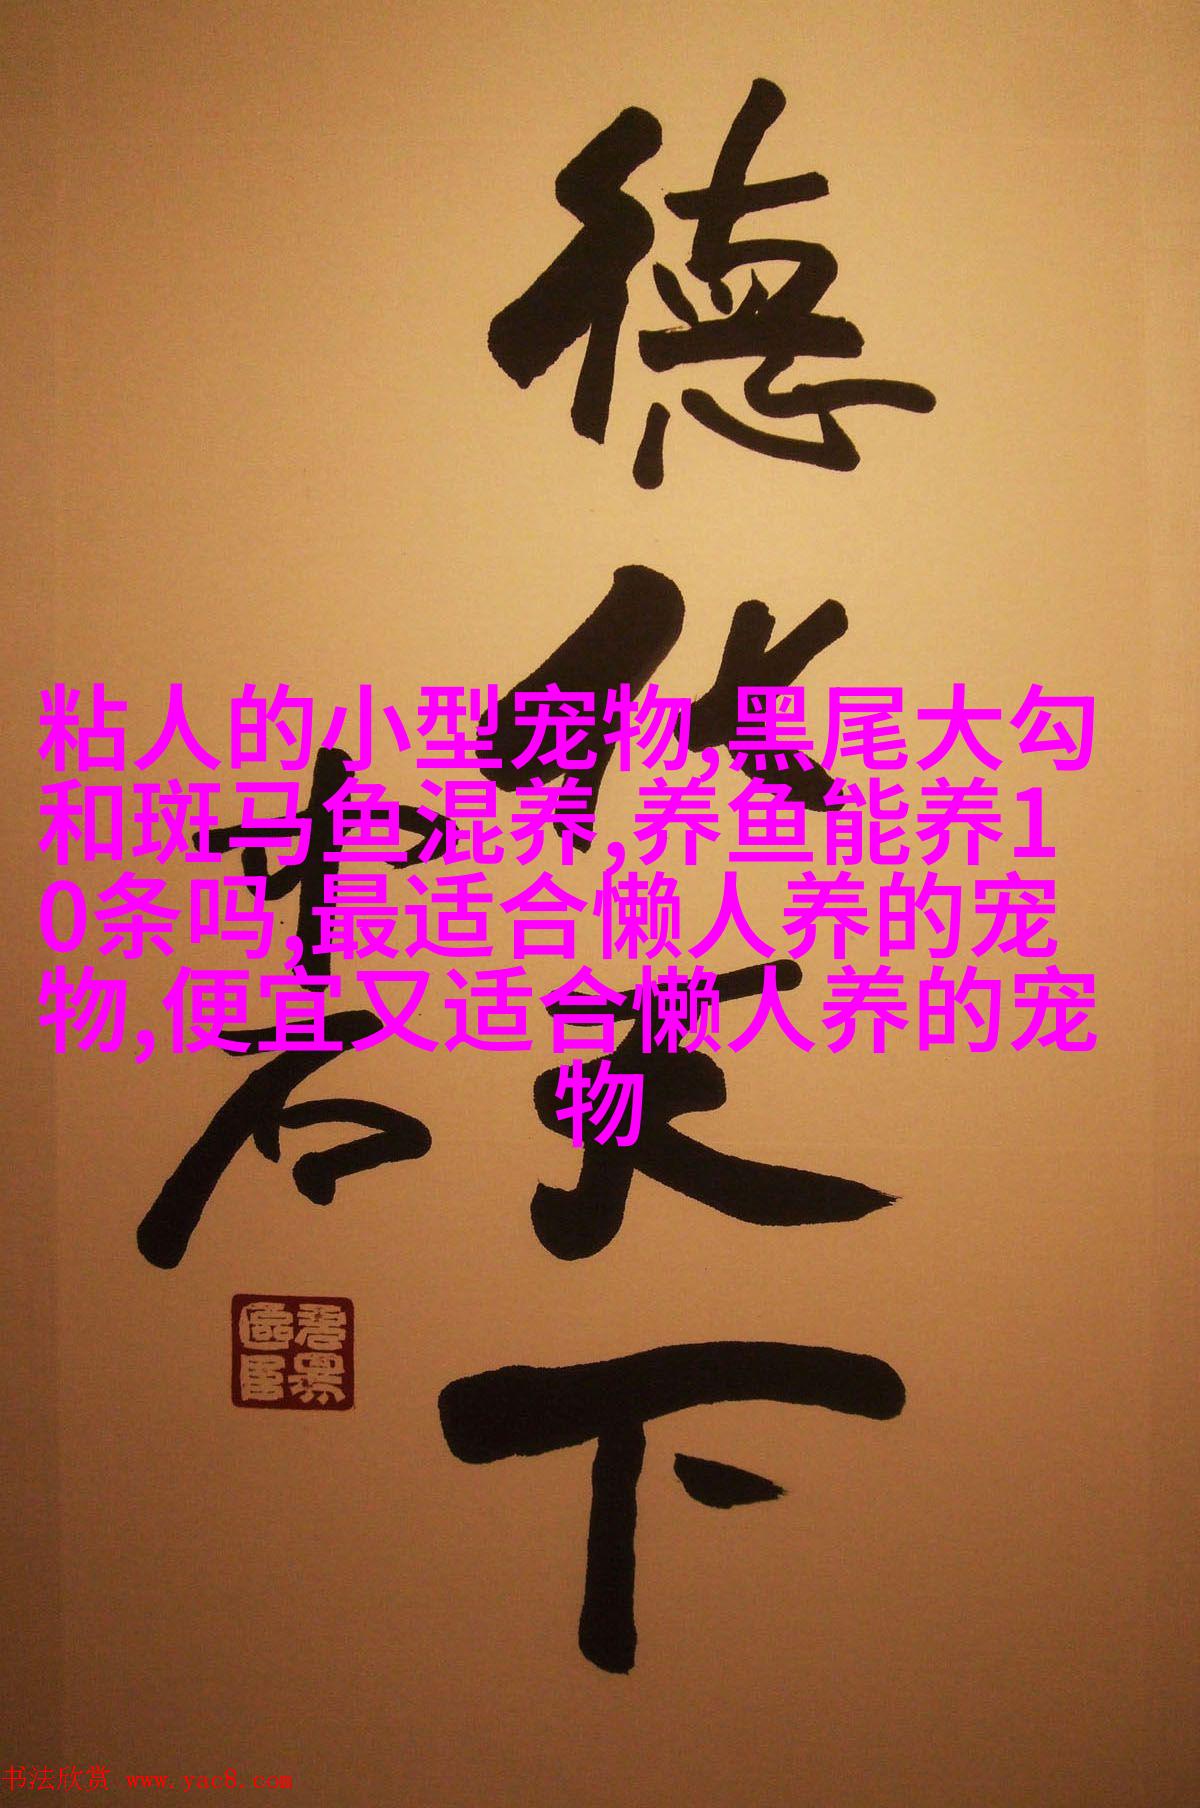 德化天下
中石
粘人的小型宠物,黑尾大勾
和斑马鱼混养,养鱼能养1
0条吗,最适合懒人养的宠
物,便宜又适合懒人养的宠
物
书法欣赏 www.yac8.com